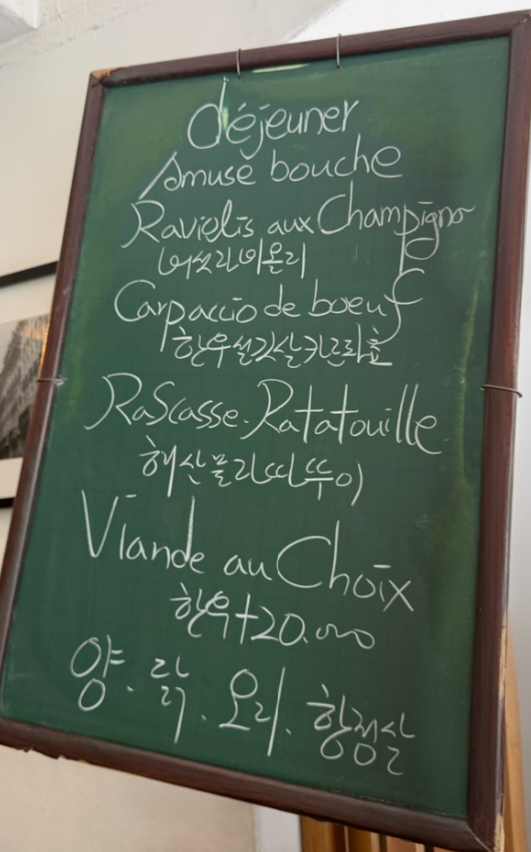 déjeuner
Amuse bouche
Raviolis aux Champigno
버섯라비올리
Carpaccio de boeuf
한우설깃살카르파쵸
Rascasse. Ratatouille
해산물라따뚜이
Viande au Choix
한우+20.000
양. 닭. 오리. 항정살